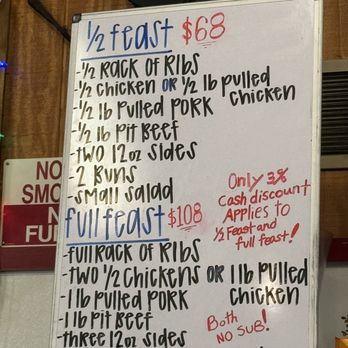 ½ feast $68
-½ Rack of Ribs
-½ chicken OR ½ lb pulled chicken
-½ lb pulled pork
-½ lb pit beef
-two 12oz sides
-2 buns
-small salad
Only 3%
Cash discount
Applies to
½ Feast and
full feast!
full feast $108
-full Rack of Ribs
-two ½ chickens OR 1 lb pulled chicken
-1 lb pulled pork
-1 lb pit beef
-three 12oz sides
Both
NO SUB!
NO
SMO
N
FU